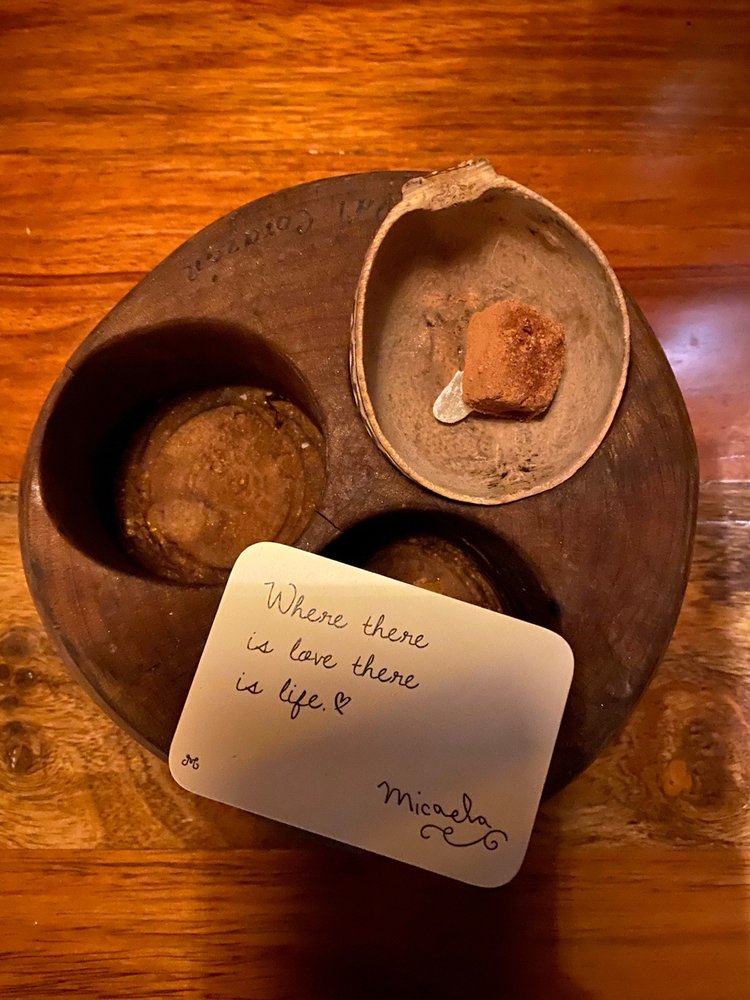 Corazon
Where there
is love there
is life.♡
M
Micaela